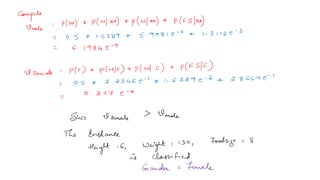 Compute
V male = P(M) * P(H|M) * P(W|M) * P(FS|M)
= 0.5 * 1.5789 * 5.9881e-6 * 1.3112e-3
= 6.1984e-9
V Female = P(F) * P(H|F) * P(W|F) * P(FS|F)
= 0.5 * 2.2346e-1 * 1.6789e-2 * 2.8669e-1
= 5.377e-4
Since V Female > V male
The Instance
Height = 6, Weight = 130, Footsize = 8
is classified
Gender = Female